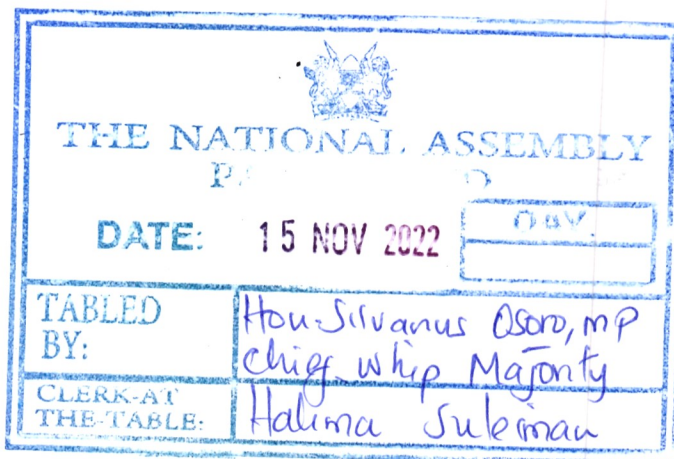 THE NATIONAL ASSEMBLY
DATE: 15 NOV 2022
DAY.
TABLED BY:
Hon. Silvanus Osoro, MP
Chief Whip Majority
CLERK-AT THE-TABLE:
Halima Suleiman